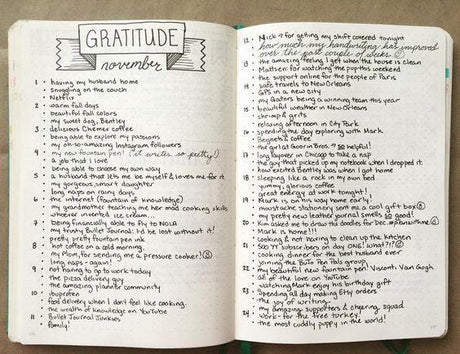 GRATITUDE
november
1 • having my husband home
• snuggling on the couch
• Netflix
2 • warm fall days
• beautiful fall colors
• my sweet dog, Bentley
3 • delicious Chemex coffee
• being able to explore my passions
• my oh-so-amazing Instagram followers
4 • my new fountain pen! (it writes so pretty!)
• a job that I love
• being able to choose my own way
5 • a husband that lets me be myself & loves me for it
• my gorgeous, smart daughter
• long naps on rainy days
6 • the internet (fountain of knowledge)
• my grandmother teaching me her mad cooking skills
• whoever invented ice cream...
7 • being financially able to fly to NOLA
• my trusty Bullet Journal: I'd be lost without it!
• pretty pretty fountain pen ink
8 • hot coffee on a cold morning.
• my Mom, for sending me a pressure cooker!
• long naps - again!
9 • not having to go to work today
• the pizza delivery guy
• the amazing planner community
10 • ibuprofen
• food delivery when I don't feel like cooking.
• the wealth of knowledge on YouTube
11 • Bullet Journal Junkies
• family!
12 • Nick for getting my shift covered tonight
• how much my handwriting has improved
over the past couple of weeks.
13 • the amazing feeling I get when the house is clean
• Mattsen for watching the pup this weekend
• the support online for the people of Paris
14 • safe travels to New Orleans
• GPS in a new city
• my Gators being a winning team this year
15 • beautiful weather in New Orleans
• shrimp & grits
• relaxing afternoon in City Park
16 • spending the day exploring with Mark
• Beignets & coffee
• the girl at Goorin Bros. so helpful!
17 • long layover in Chicago to take a nap
• the guy that picked up my notebook when I dropped it.
• how excited Bentley was when I got home
18 • sleeping like a rock in my own bed
• yummy, glorious coffee
• great energy at work tonight!
19 • Mark is on his way home early!
• moustache stationery sent me a cool gift box
• my pretty new leather journal smells so good!
20 • Kim asked me to draw the doodles for Dec.
• Mark is home!!!
• cooking & not having to clean up the kitchen
21 • 500 YT subscribers on day ONE! What?!!
• cooking dinner for the best husband ever
• joining the BuJo Pen Pals group.
22 • my beautiful new fountain pen! Visconti Van Gogh
• all of the love on YouTube
• watching Mark enjoy his birthday gift
23 • spending all day making Etsy orders
• the joy of writing...
• my amazing supporters & cheering squad
24 • work-for the free turkey!
• the most cuddly puppy in the world!